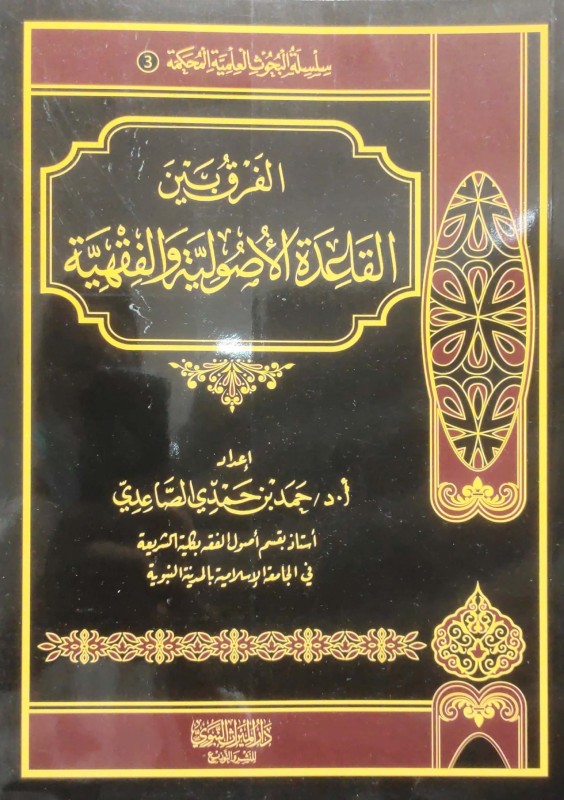 سلسلة البحوث العلمية المحكمة 3
الفرق بين
القاعدة الأصولية والفقهية
إعداد
أ.د/ حمد بن حمدي الصاعدي
أستاذ بقسم أصول الفقه بكلية الشريعة
في الجامعة الإسلامية بالمدينة النبوية
دار الميراث النبوي
للنشر والتوزيع